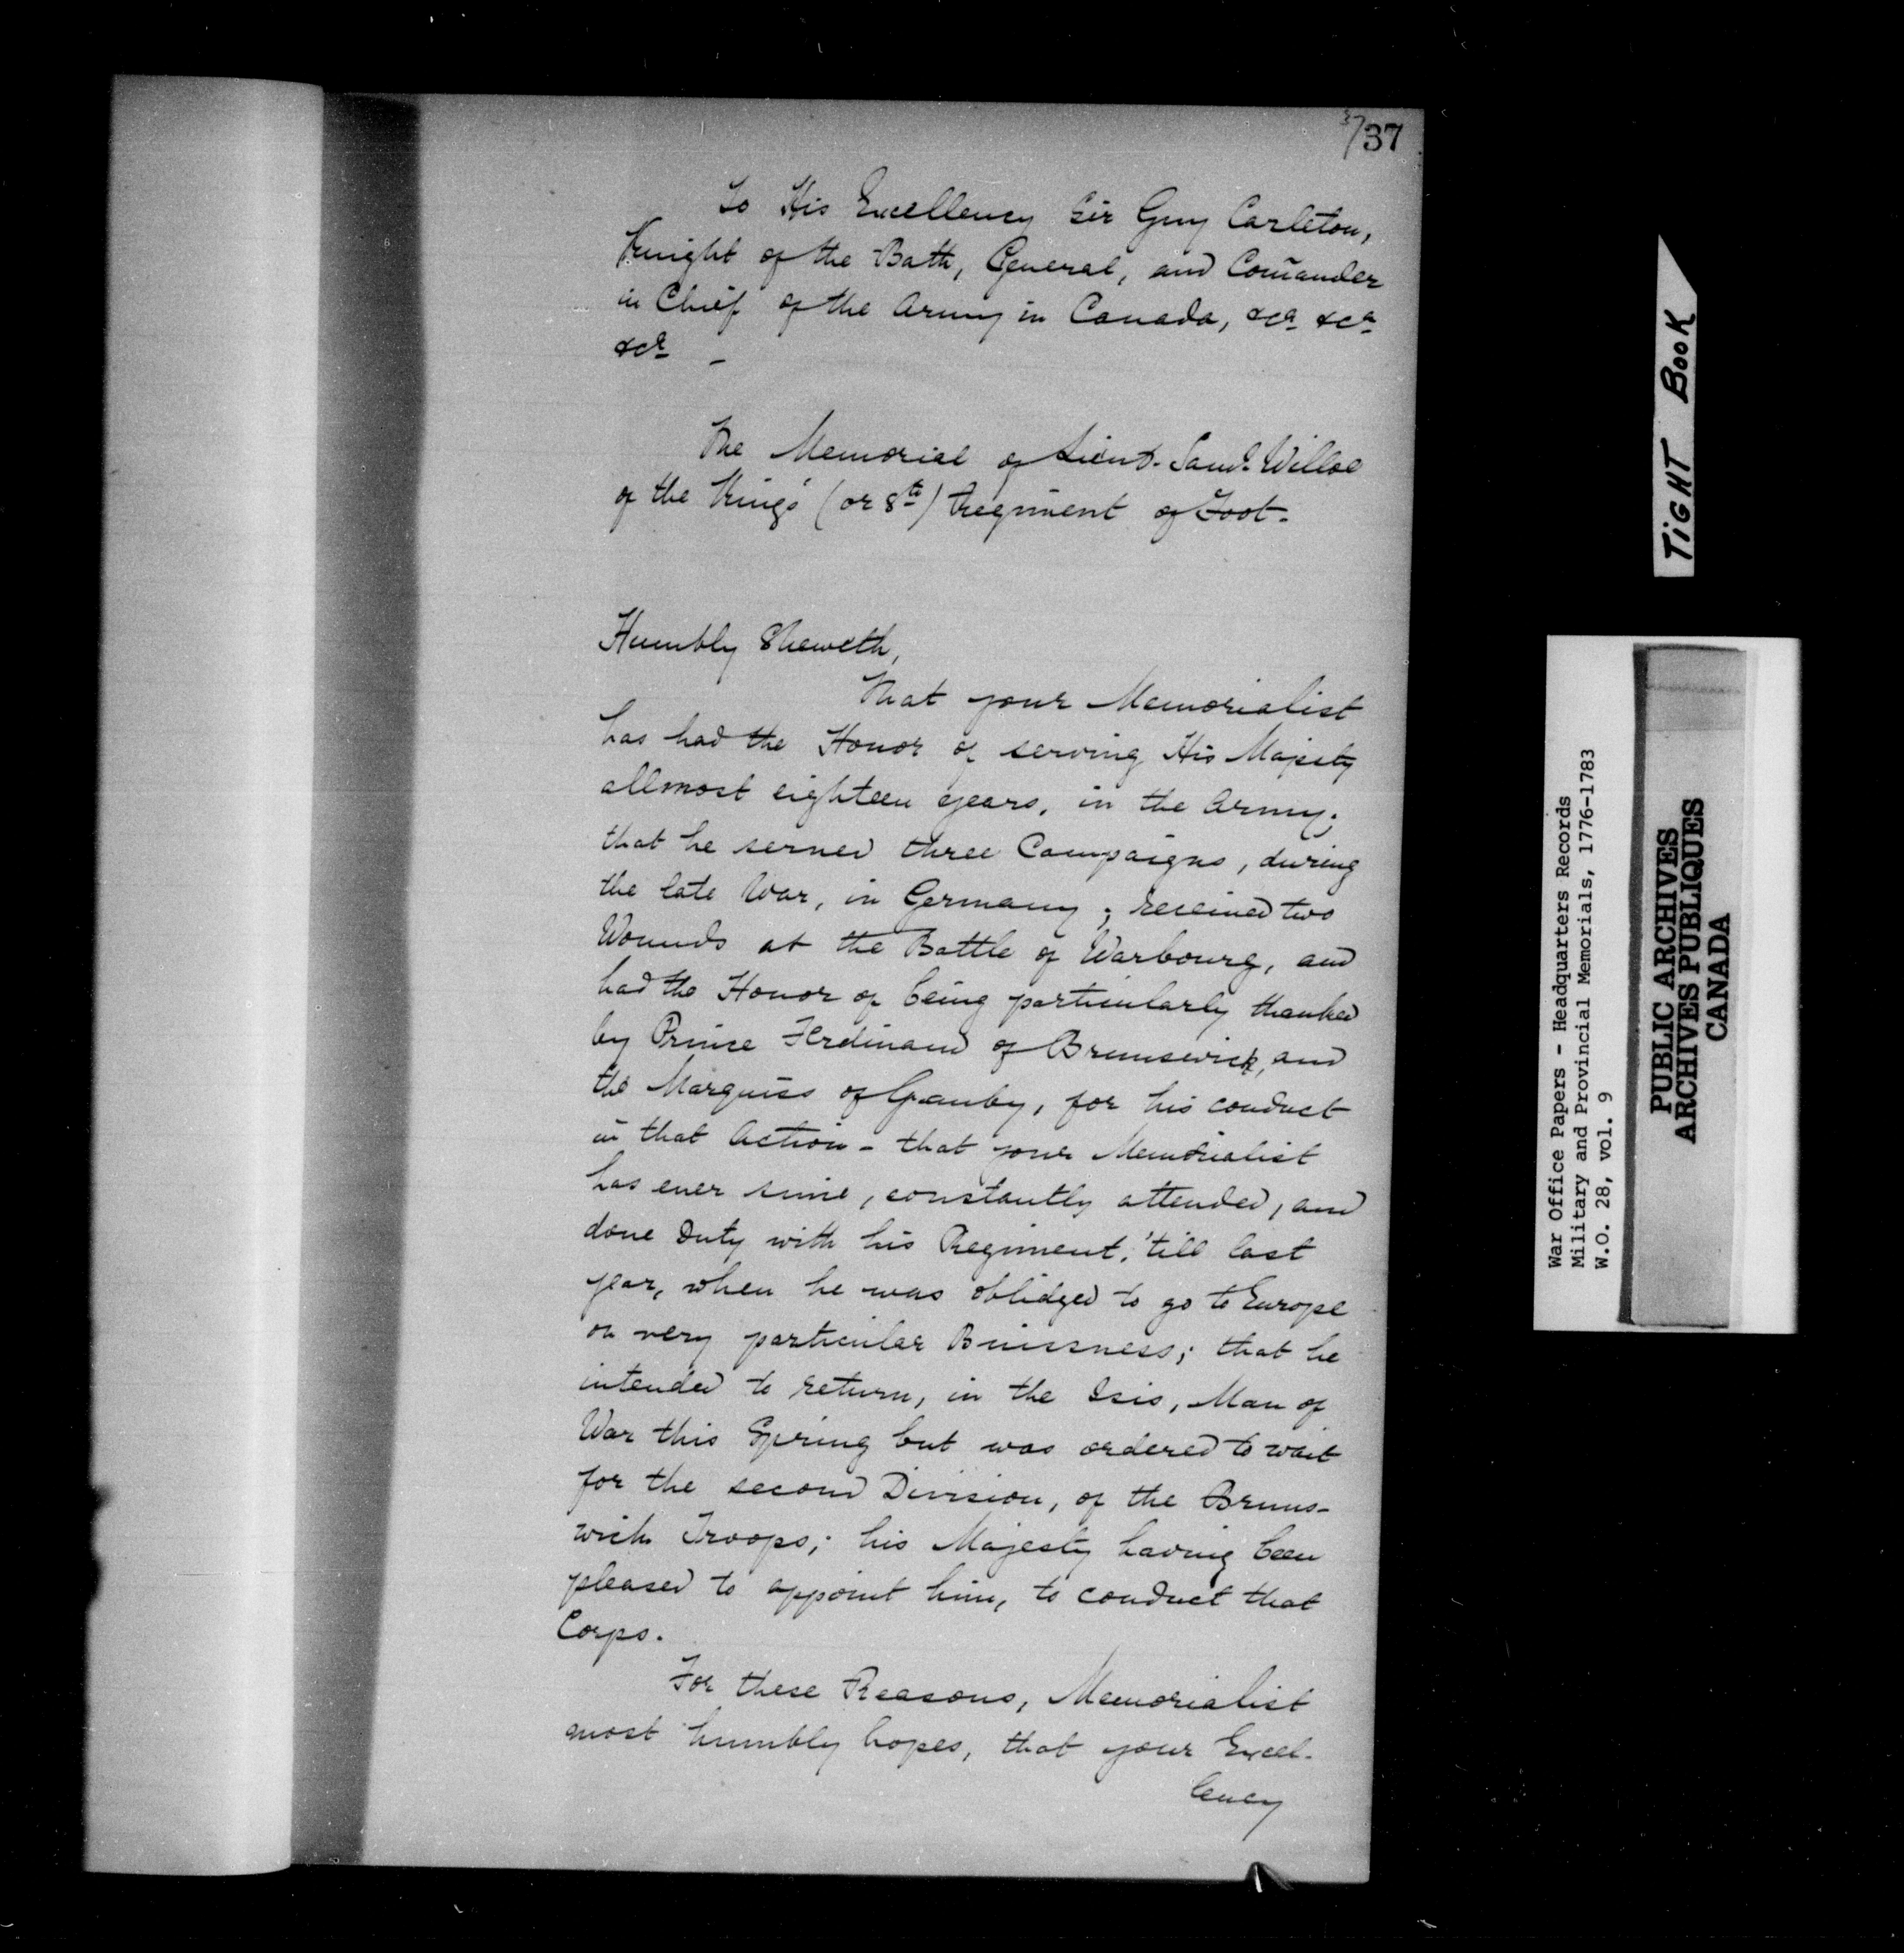 37
37
To His Excellency Sir Guy Carleton,
Knight of the Bath, General, and Com̄ander
in Chief of the Army in Canada, &ca &ca
&ca –
The Memorial of Lieut. Saml. Willoe
of the King's (or 8th) Regiment of Foot.
Humbly Sheweth,
That your Memorialist
has had the Honor of serving His Majesty
allmost eighteen years, in the Army;
that he served three Campaigns, during
the late War, in Germany; received two
Wounds at the Battle of Warbourg, and
had the Honor of being particularly thanked
by Prince Ferdinand of Brunswick, and
the Marquiss of Granby, for his conduct
in that Action – that your Memorialist
has ever since, constantly attended, and
done Duty with his Regiment, 'till last
year, when he was oblidged to go to Europe
on very particular Buissness; that he
intended to return, in the Isis, Man of
War this Spring but was ordered to wait
for the second Division, of the Bruns-
wick Troops; his Majesty having been
pleased to appoint him, to conduct that
Corps.
For these Reasons, Memorialist
most humbly hopes, that your Excel-
lency
TIGHT BOOK
War Office Papers - Headquarters Records
Military and Provincial Memorials, 1776-1783
W.O. 28, vol. 9
PUBLIC ARCHIVES
ARCHIVES PUBLIQUES
CANADA